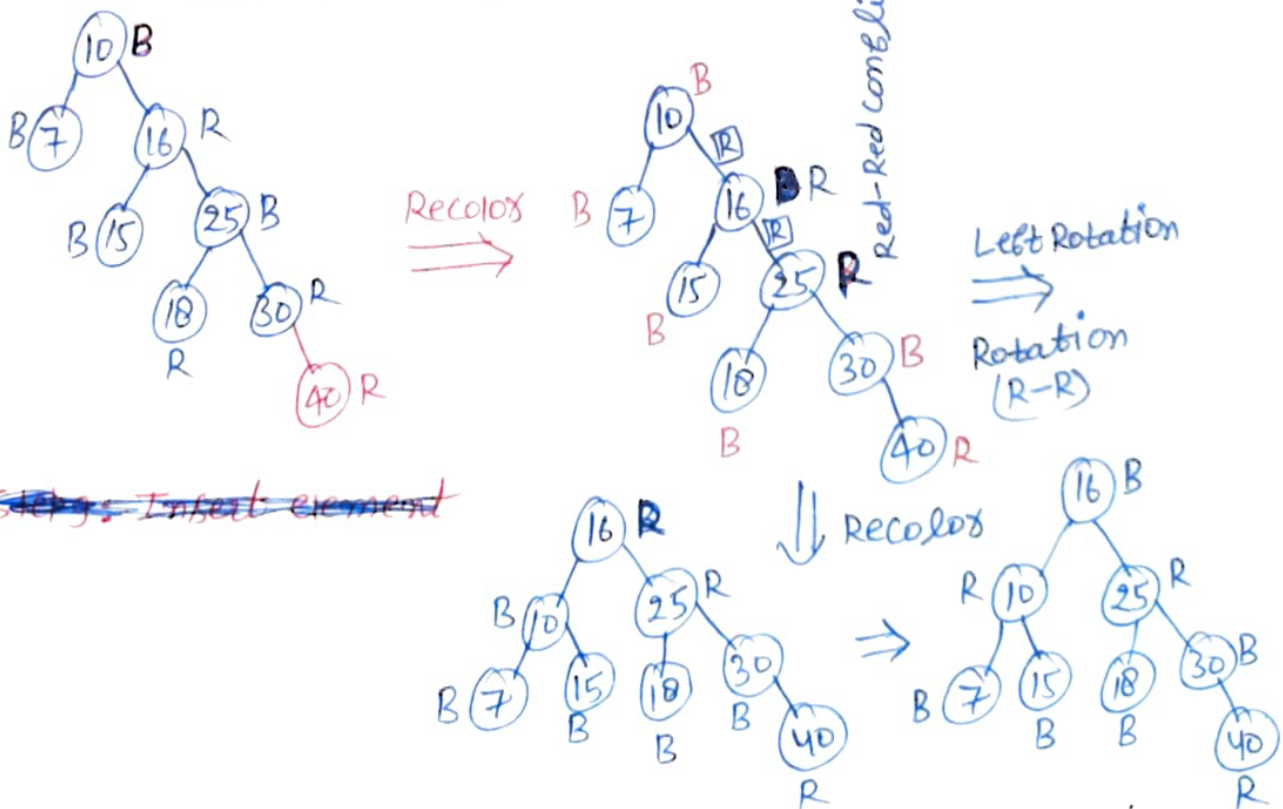 10 B
B 7 16 R
B 15 25 B
18 30 R
R
40 R
Recolor
B
10
R
B 7 16 R
R
15 25 R
B
18 30 B
B
40 R
Red-Red
Left Rotation
Rotation
(R-R)
Insert element
Recolor
16 R
B 10 25 R
B 7 15 18 30
B B B
40
R
16 B
R 10 25 R
B 7 15 18 30 B
B B
40
R